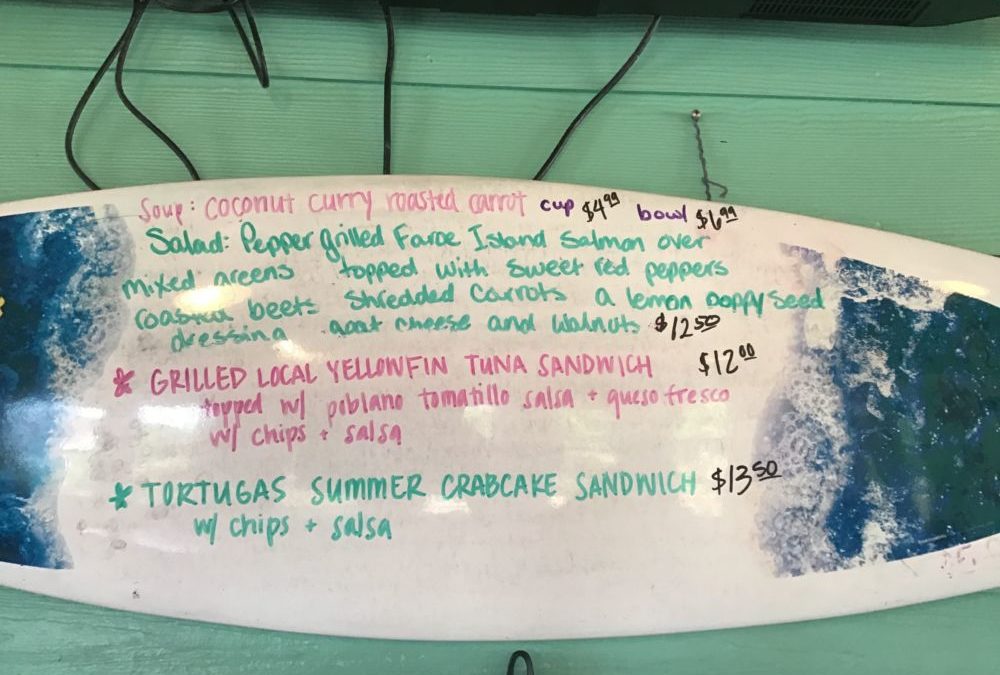 Soup: coconut curry roasted carrot cup $4.99 bowl $6.99
Salad: Pepper grilled Faroe Island Salmon over
mixed greens topped with sweet red peppers
roasted beets shredded carrots a lemon poppy seed
dressing goat cheese and walnuts $12.50
* GRILLED LOCAL YELLOWFIN TUNA SANDWICH $12.00
topped w/ poblano tomatillo salsa + queso fresco
w/ chips + salsa
* TORTUGAS SUMMER CRABCAKE SANDWICH $13.50
w/ chips + salsa